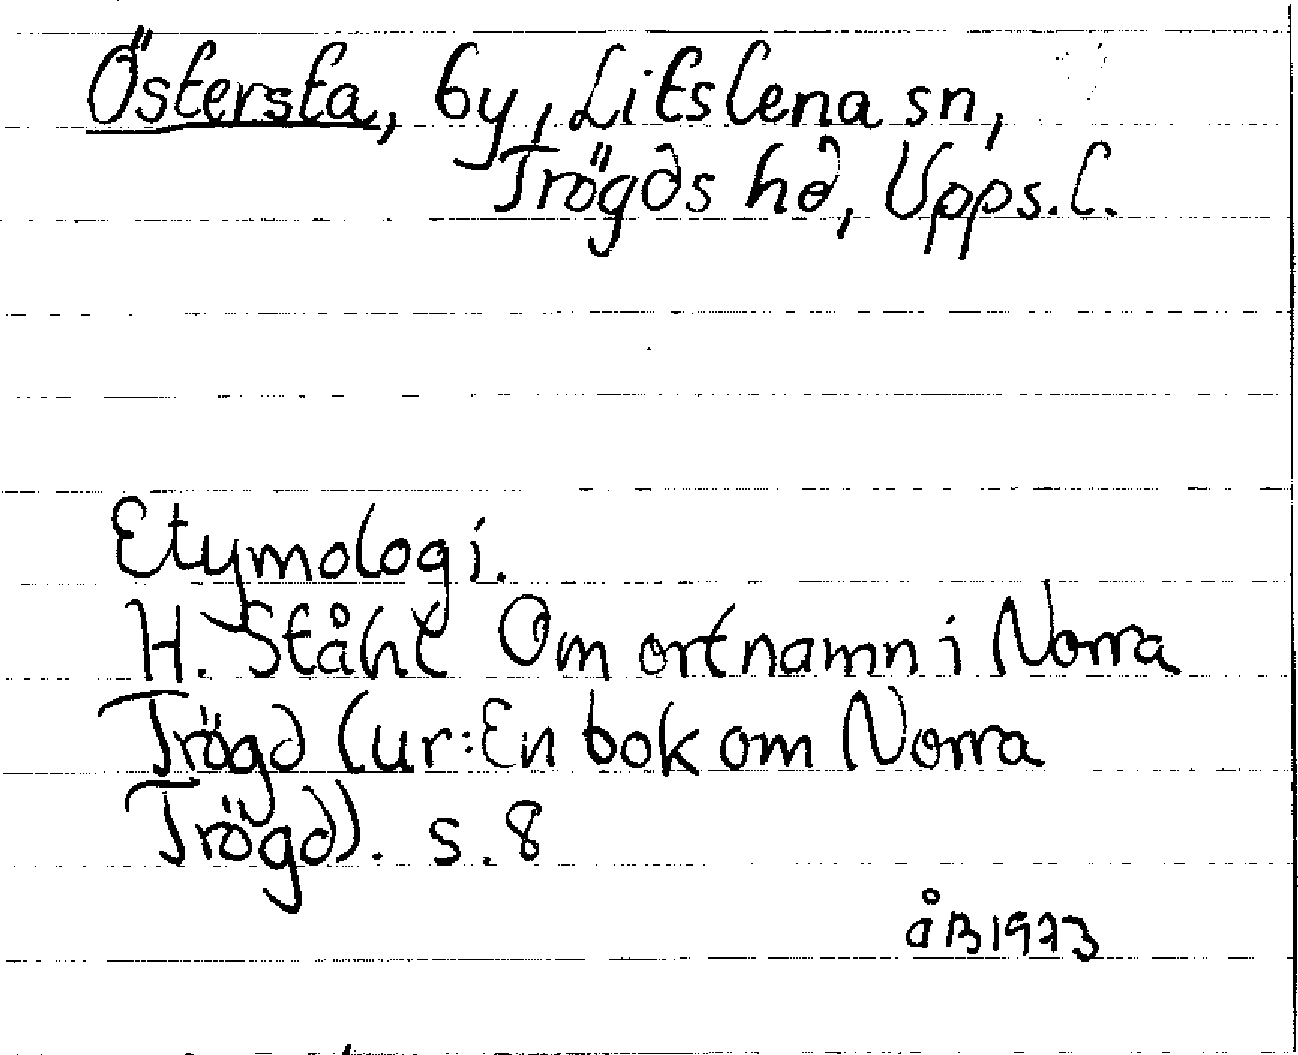 Östersta, by, Litslena sn,
Trögds hd, Upps.l.
Etymologi.
H. Ståhl Om ortnamn i Norra
Trögd (ur: En bok om Norra
Trögd). s. 8
åB 1973